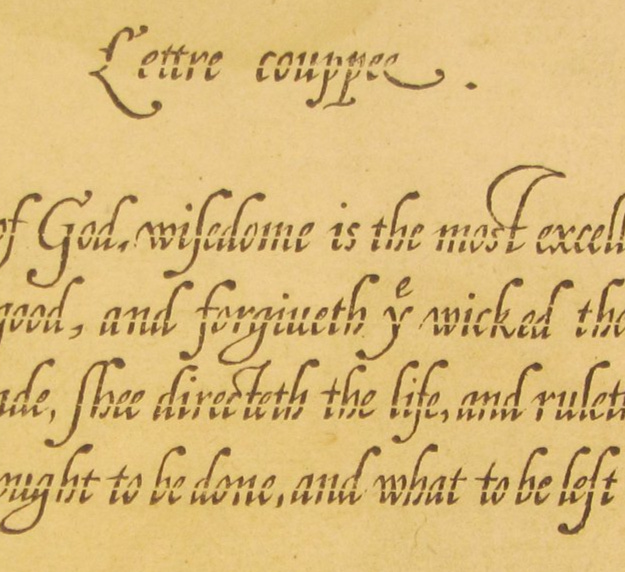 Lettre couppee.
of God, wisedome is the most excell
good, and forgiueth yͤ wicked the
ade, shee directeth the life, and ruleth
ought to be done, and what to be left